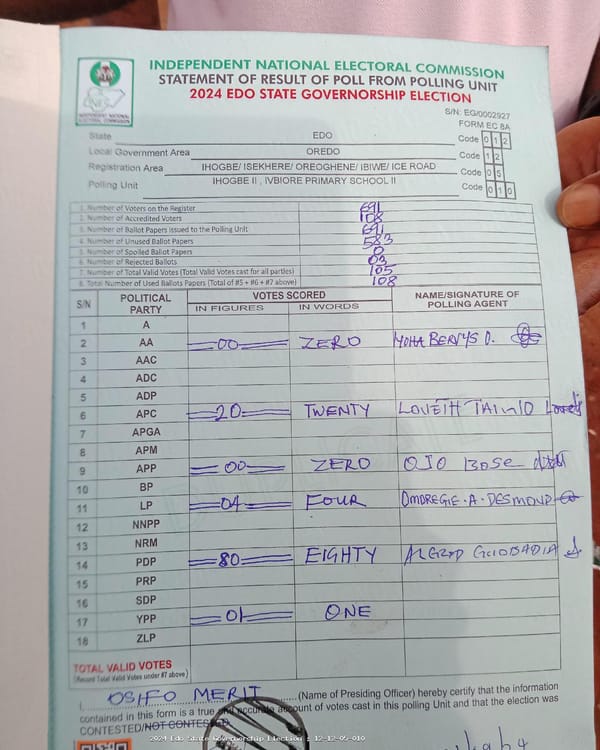 INDEPENDENT NATIONAL ELECTORAL COMMISSION
STATEMENT OF RESULT OF POLL FROM POLLING UNIT
2024 EDO STATE GOVERNORSHIP ELECTION
S/N: EG/0002927
FORM EC 8A
State EDO Code 0 1 2
Local Government Area OREDO Code 1 2
Registration Area IHOGBE/ ISEKHERE/ OREOGHENE/ IBIWE/ ICE ROAD Code 0 5
Polling Unit IHOGBE II , IVBIORE PRIMARY SCHOOL II Code 0 1 0
1. Number of Voters on the Register 691
2. Number of Accredited Voters 108
3. Number of Ballot Papers Issued to the Polling Unit 691
4. Number of Unused Ballot Papers 583
5. Number of Spoiled Ballot Papers 0
6. Number of Rejected Ballots 03
7. Number of Total Valid Votes (Total Valid Votes cast for all parties) 105
8. Total Number of Used Ballots Papers (Total of #5 + #6 + #7 above) 108
S/N POLITICAL PARTY VOTES SCORED NAME/SIGNATURE OF POLLING AGENT
IN FIGURES IN WORDS
1 A
2 AA 00 ZERO
3 AAC
4 ADC
5 ADP
6 APC 20 TWENTY LOVETH
7 APGA
8 APM
9 APP 00 ZERO OJO BOSE
10 BP
11 LP 04 FOUR OMOREGIE.A.DESMOND
12 NNPP
13 NRM
14 PDP 80 EIGHTY
15 PRP
16 SDP
17 YPP 01 ONE
18 ZLP
TOTAL VALID VOTES
(Record Total Valid Votes under #7 above)
I, OSIFO MERIT (Name of Presiding Officer) hereby certify that the information
contained in this form is a true and accurate account of votes cast in this polling Unit and that the election was
CONTESTED/NOT CONTESTED
2024 Edo State Governorship Election : 12-12-05-010